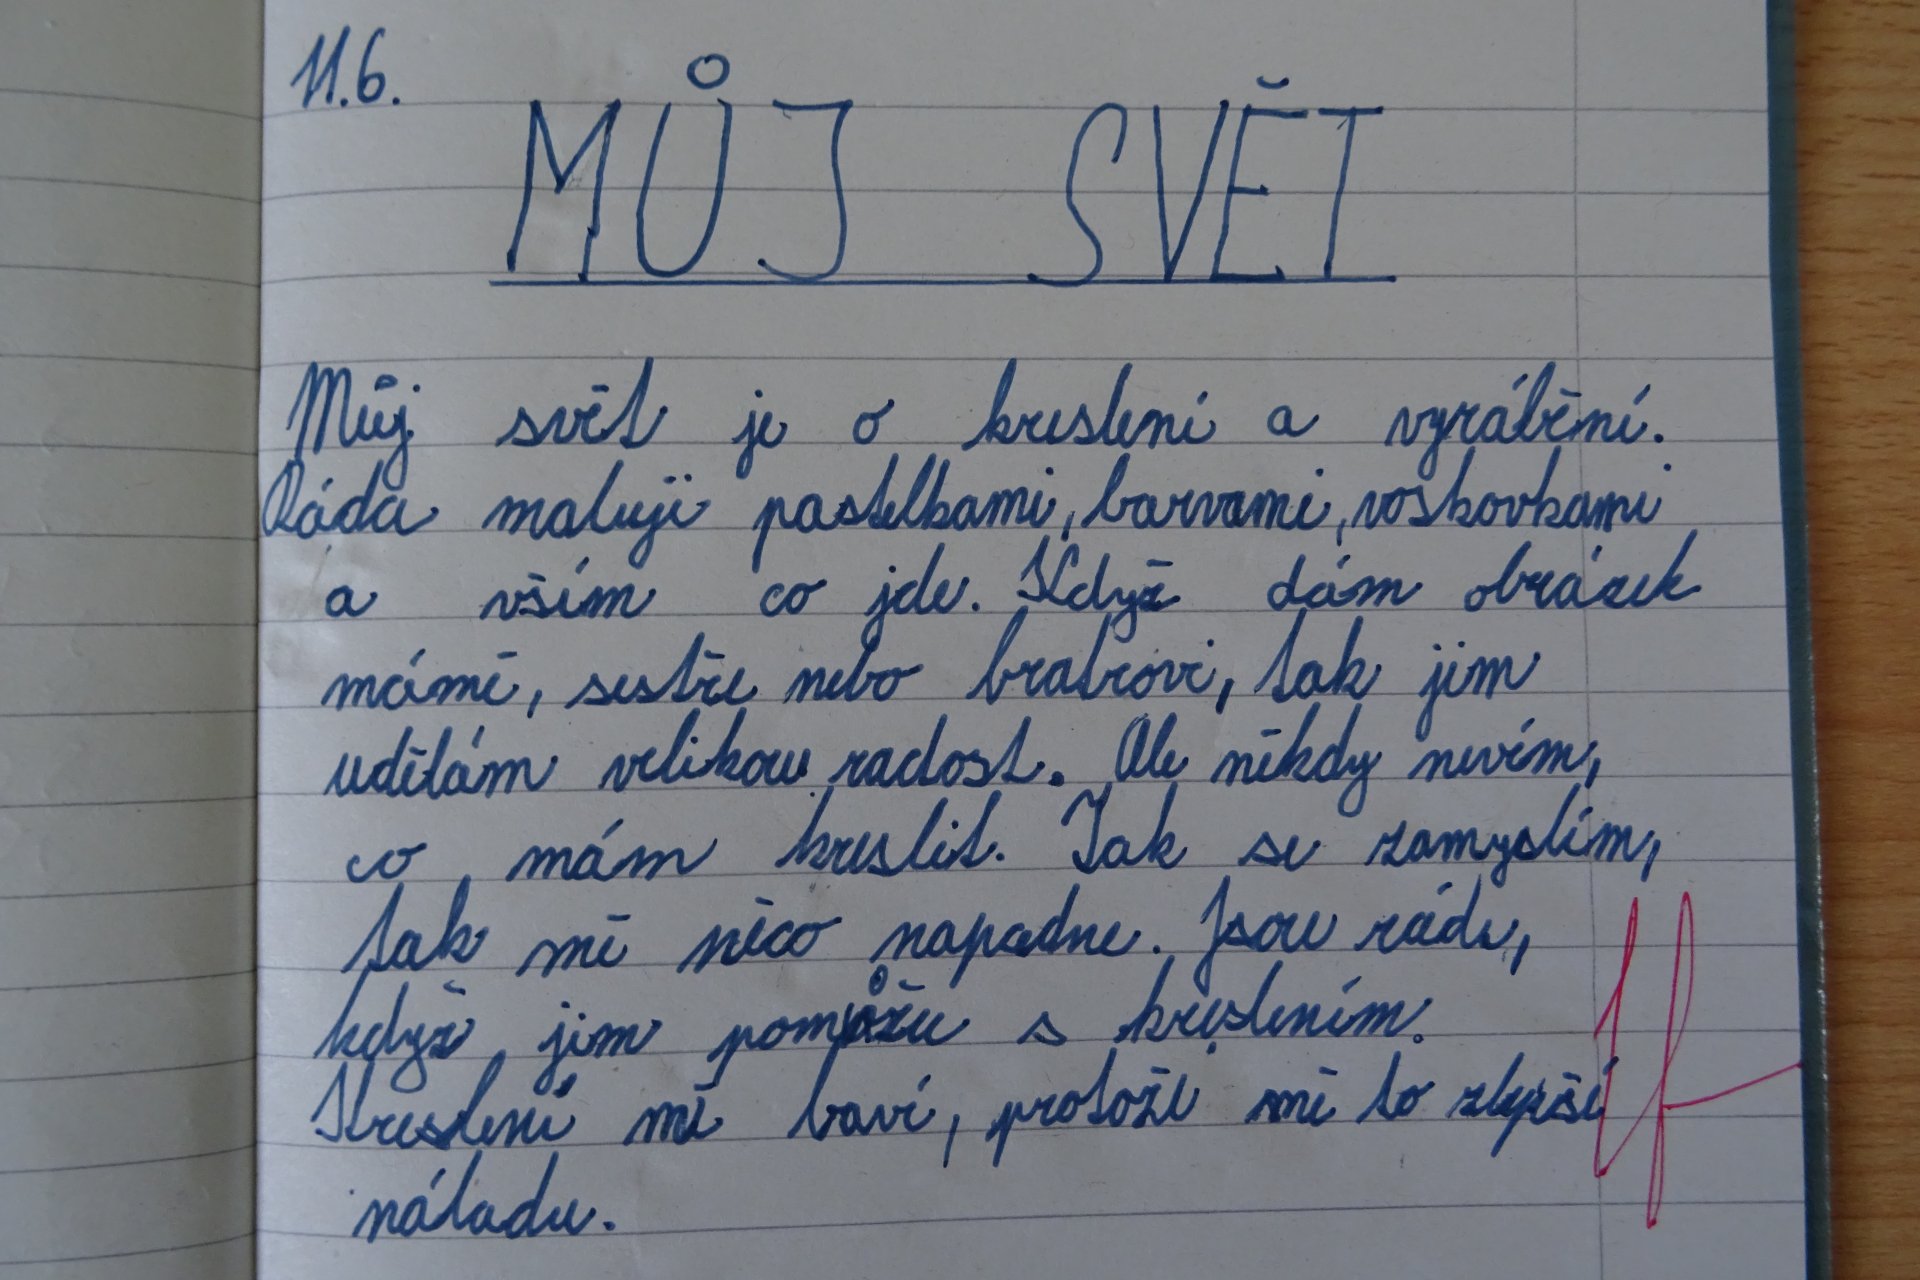 11.6.
MŮJ SVĚT
Můj svět je o kreslení a vyrábění.
Ráda maluji pastelkami, barvami, voskovkami
a vším co jde. Když dám obrázek
mámě, sestře nebo bratrovi, tak jim
udělám velikou radost. Ale někdy nevím,
co mám kreslit. Tak se zamyslím,
tak mě něco napadne. Jsou rádi,
když jim pomůžu s kreslením.
Kreslení mě baví, protože mě to zlepší
náladu.